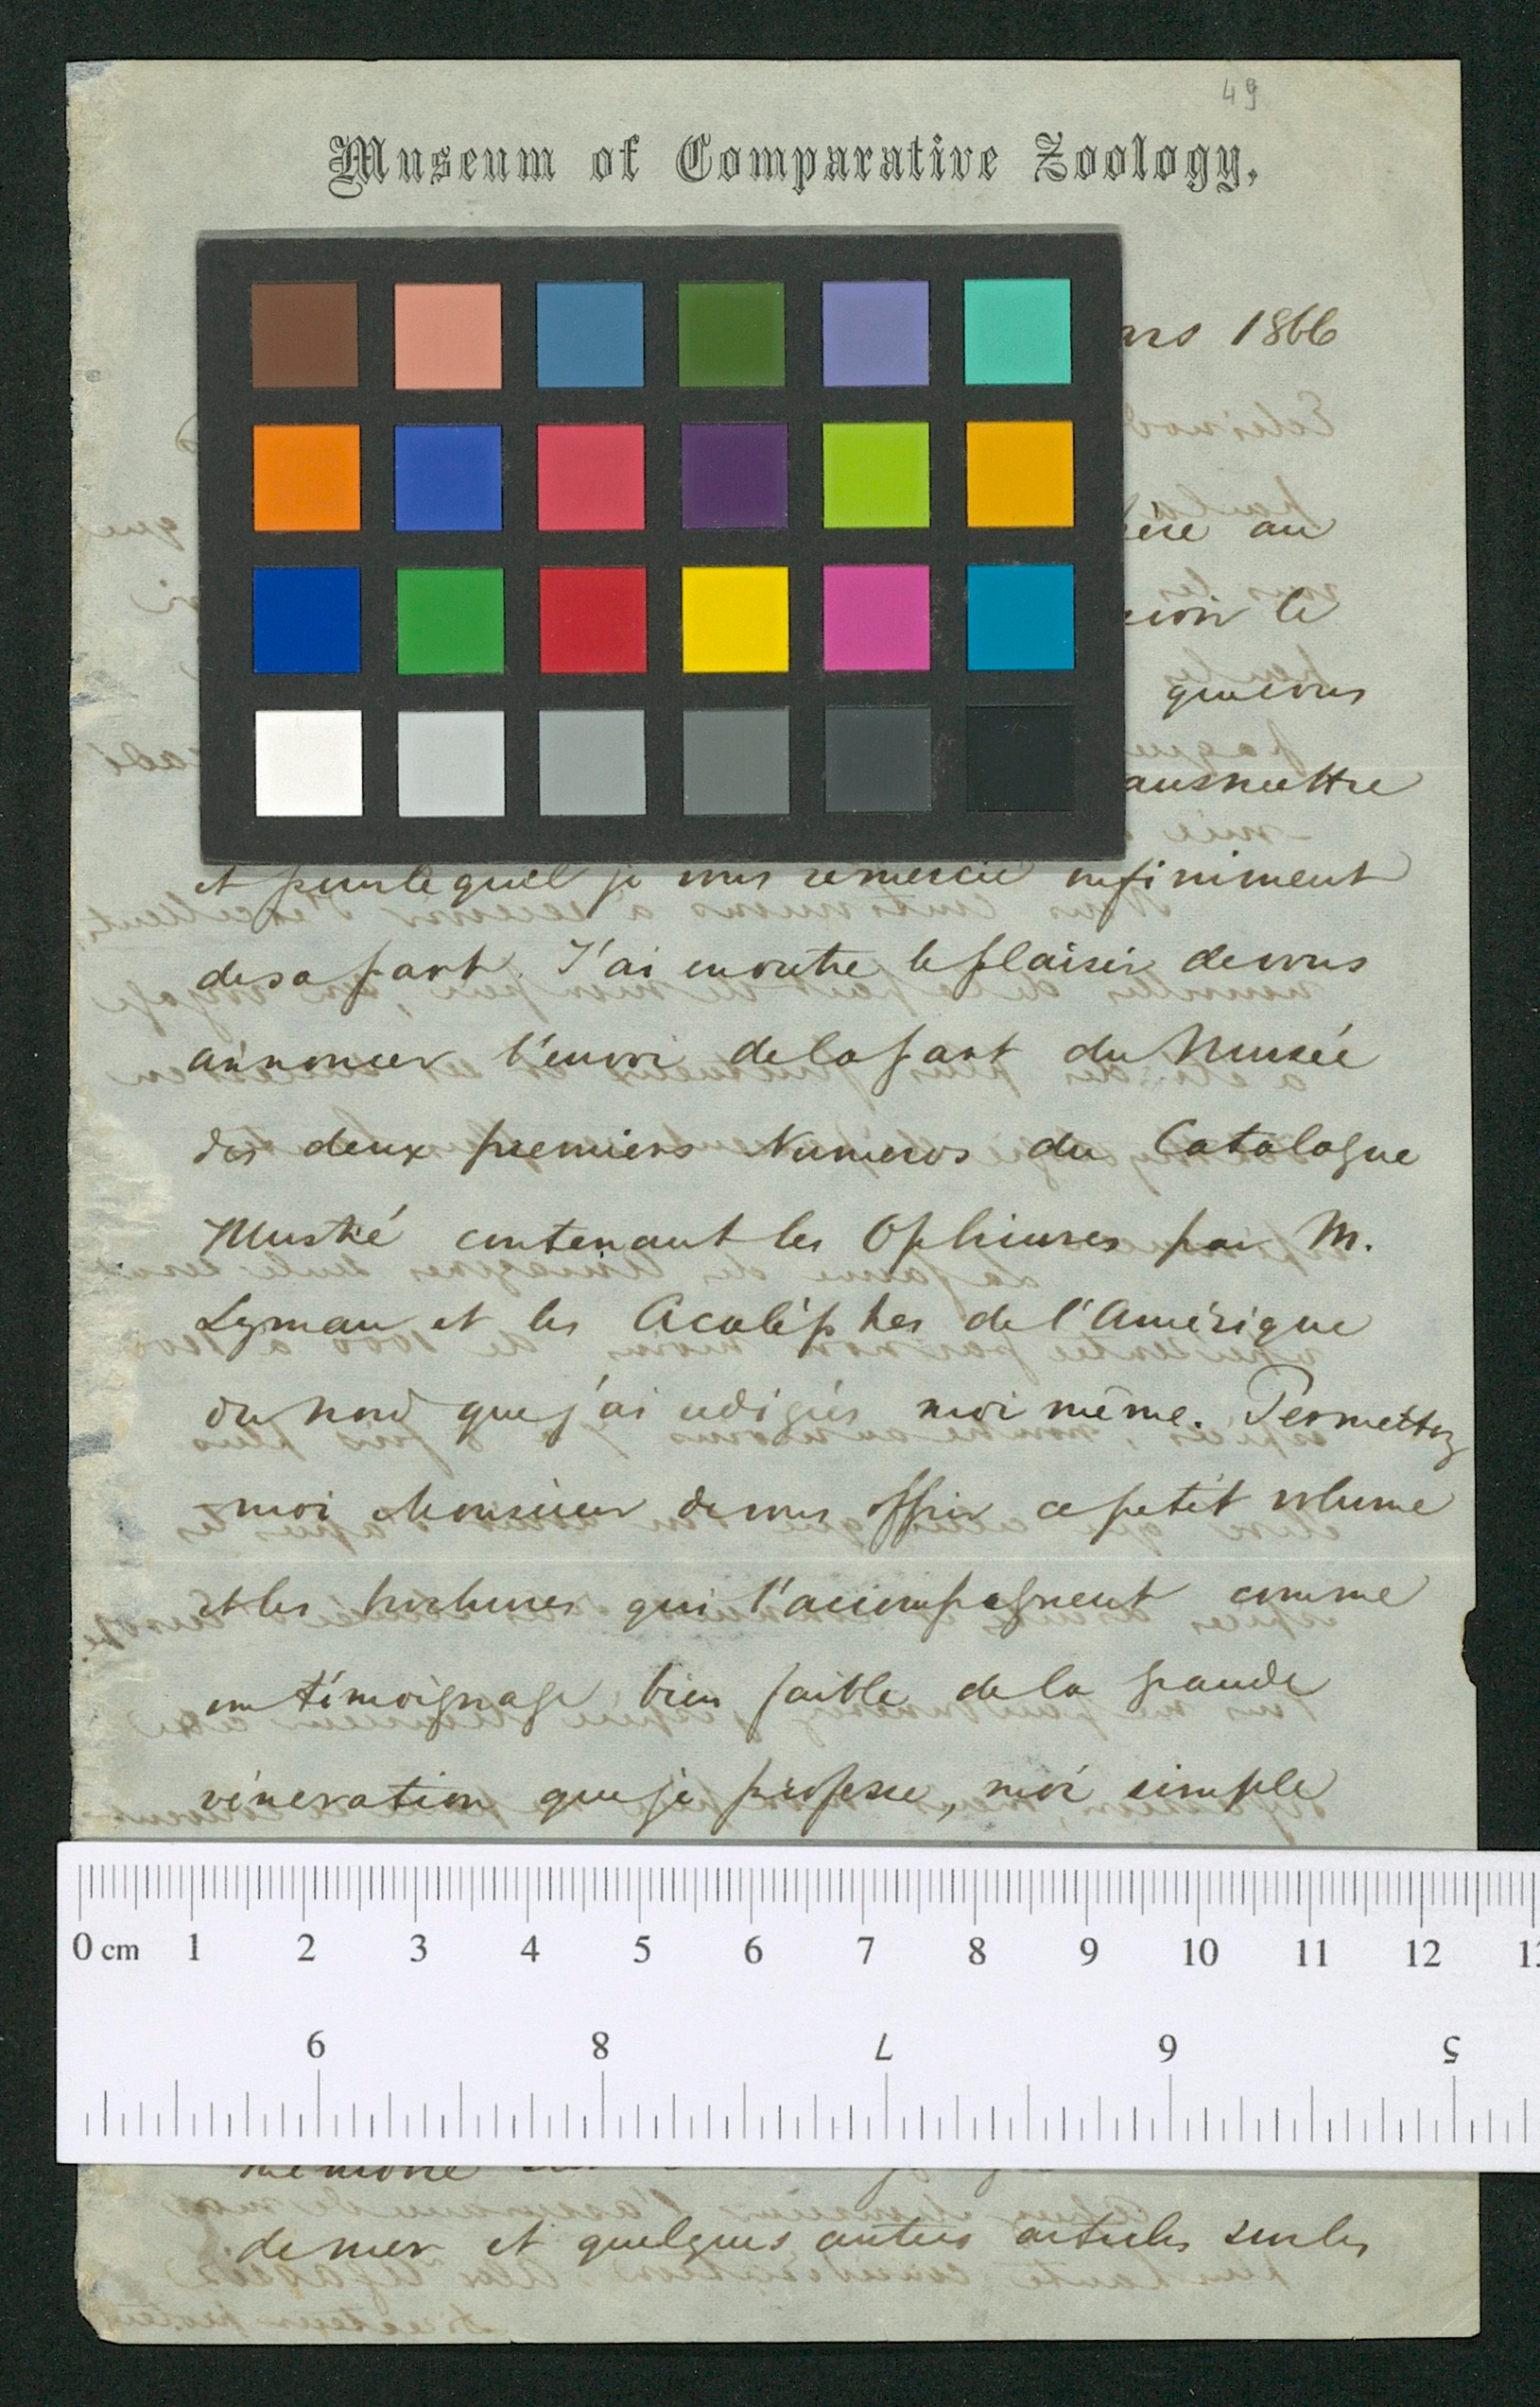 49
Museum of Comparative Zoology,
1866
au
le
que vous
et pour lequel je vous remercie infiniment
de sa part. J'ai en outre le plaisir de vous
annoncer l'envoi de la part du Musée
des deux premiers Numeros du Catalogue
Illustré contenant les Ophiures par M.
Lyman et les Acalèphes de l'Amérique
du Nord que j'ai redigées moi même. Permettez
-moi Monsieur de vous offrir ce petit volume
et les brochures qui l'accompagnent comme
un témoignage bien faible de la grande
véneration que je professe, moi simple
0 cm 1 2 3 4 5 6 7 8 9 10 11 12
9 8 7 6 5
de mer et quelques autres articles sur les